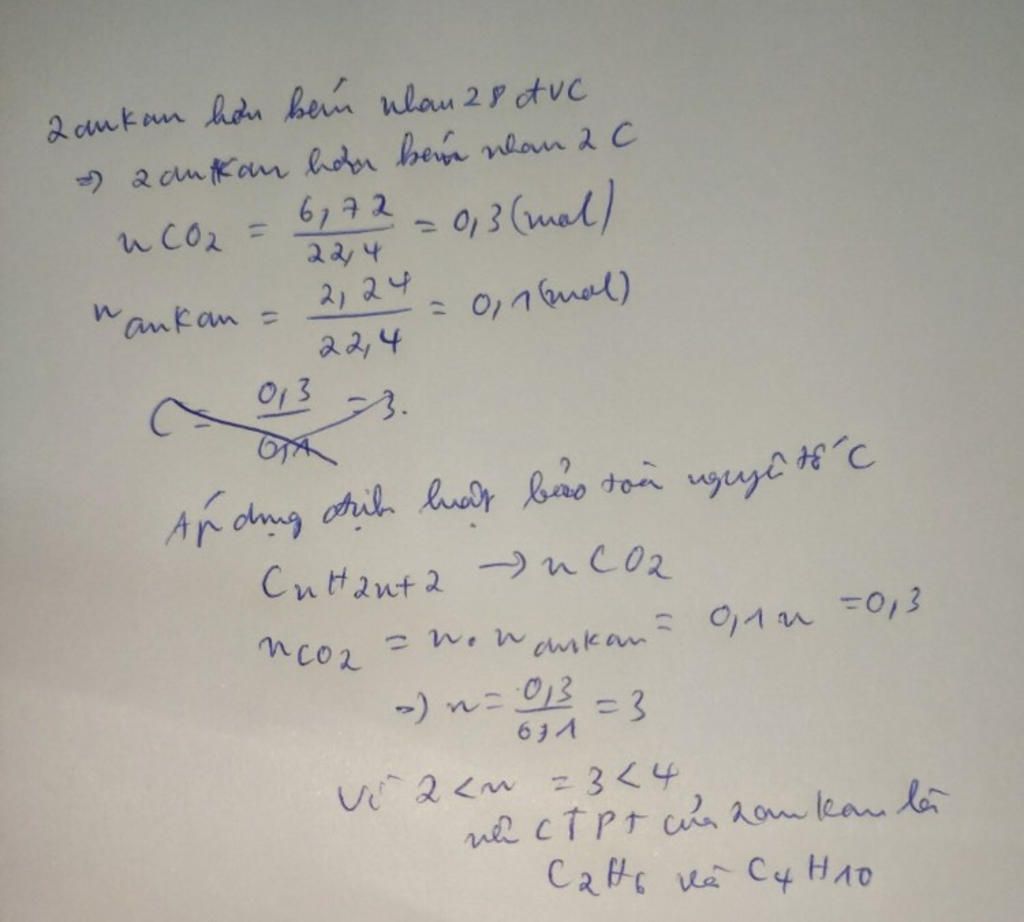 2 ankan hơn kém nhau 28 đvC
⇒ 2 ankan hơn kém nhau 2 C
nCO2 = 6,72/22,4 = 0,3 (mol)
n ankan = 2,24/22,4 = 0,1 (mol)
C = 0,3/0,1 = 3.
Áp dụng định luật bảo toàn nguyên tố C
CnH2n+2 → nCO2
nCO2 = n. n ankan = 0,1n = 0,3
⇒ n = 0,3/0,1 = 3
Vì 2 < n = 3 < 4
nên CTPT của 2 ankan là
C2H6 và C4H10